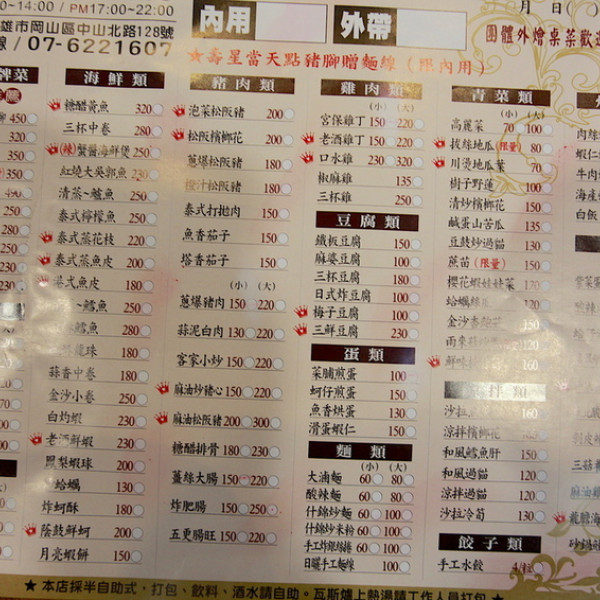 0~14:00 / PM17:00~22:00
雄市岡山區中山北路128號
線/07-6221607
內用
外帶
月 日( )
團體外燴桌菜歡迎
★壽星當天點豬腳贈麵線(限內用)
牌菜
450
320
350
350
海鮮類
糖醋黃魚 320
三杯中卷 280
(辣)蟹醬海鮮煲 250
紅燒大吳郭魚 230
清蒸~鱸魚 250
泰式檸檬魚 250
泰式蒸花枝 220
泰式蒸魚皮 200
泰式魚皮 180
~鱸魚 250
鱸魚 280
龍珠 180
蒜香中卷 180
金沙小卷 250
白灼蝦 230
老酒鮮蝦 230
鳳梨蝦球 200
蛤蠣 130
炸蚵酥 180
蔭鼓鮮蚵 200
月亮蝦餅 150
豬肉類
泡菜松阪豬 200
松阪檳榔花 200
蔥爆松阪豬 180
橙汁松阪豬 180
泰式打拋肉 150
魚香茄子 150
塔香茄子 150
(小) (大)
蔥爆豬肉 150 220
蒜泥白肉 130 220
客家小炒 150 220
麻油炒豬心 150 220
麻油松阪豬 200 300
糖醋排骨 180 230
薑絲大腸 150 220
炸肥腸 150 250
五更腸旺 150 220
雞肉類
(小) (大)
宮保雞丁 150 220
老酒雞丁 150 220
口水雞 230 320
椒麻雞 135
三杯雞 250
豆腐類
鐵板豆腐 150
麻婆豆腐 100
三杯豆腐 180
日式炸豆腐 100
梅子豆腐 100
三鮮豆腐 230
蛋類
菜脯煎蛋 100
蚵仔煎蛋 150
魚香烘蛋 150
滑蛋蝦仁 150
麵類
(小) (大)
大滷麵 60 80
酸辣麵 60 80
什錦炒麵 60 100
什錦炒米粉 60 100
手工炸銀絲捲 60
日曬手工麵線 100
青菜類
(小) (大)
高麗菜 70 100
拔絲地瓜(限量) 80
川燙地瓜葉 70
樹子野蓮 100
清炒檳榔花 150
鹹蛋山苦瓜 135
豆鼓炒過貓 120
蔗苗(限量) 150
櫻花蝦娃娃菜 130
蛤蠣絲瓜 150
金沙杏鮑菇 150
雨來菇
鮮味 160
拌類
沙拉 160
涼拌檳榔花 150
和風鱈魚肝 150
和風過貓 120
涼拌過貓 120
沙拉冷筍 130
餃子類
手工水餃 4/粒
肉絲
蝦仁
牛肉
海鮮
白飯
三菇
麻油
砂鍋
★本店採半自助式,打包、飲料、酒水請自助。瓦斯爐上熱湯請工作人員打包★